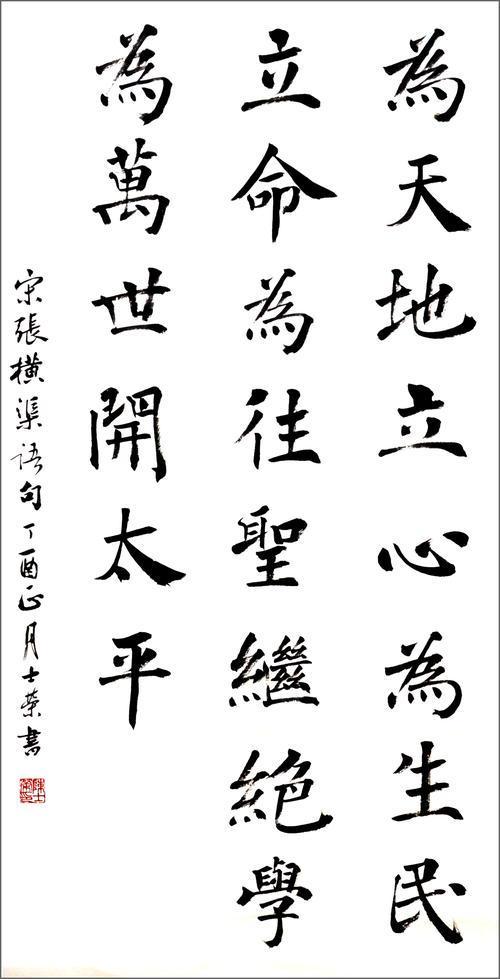 為天地立心為生民
立命為往聖繼絕學
為萬世開太平
宋張橫渠语句丁酉正月士荣書